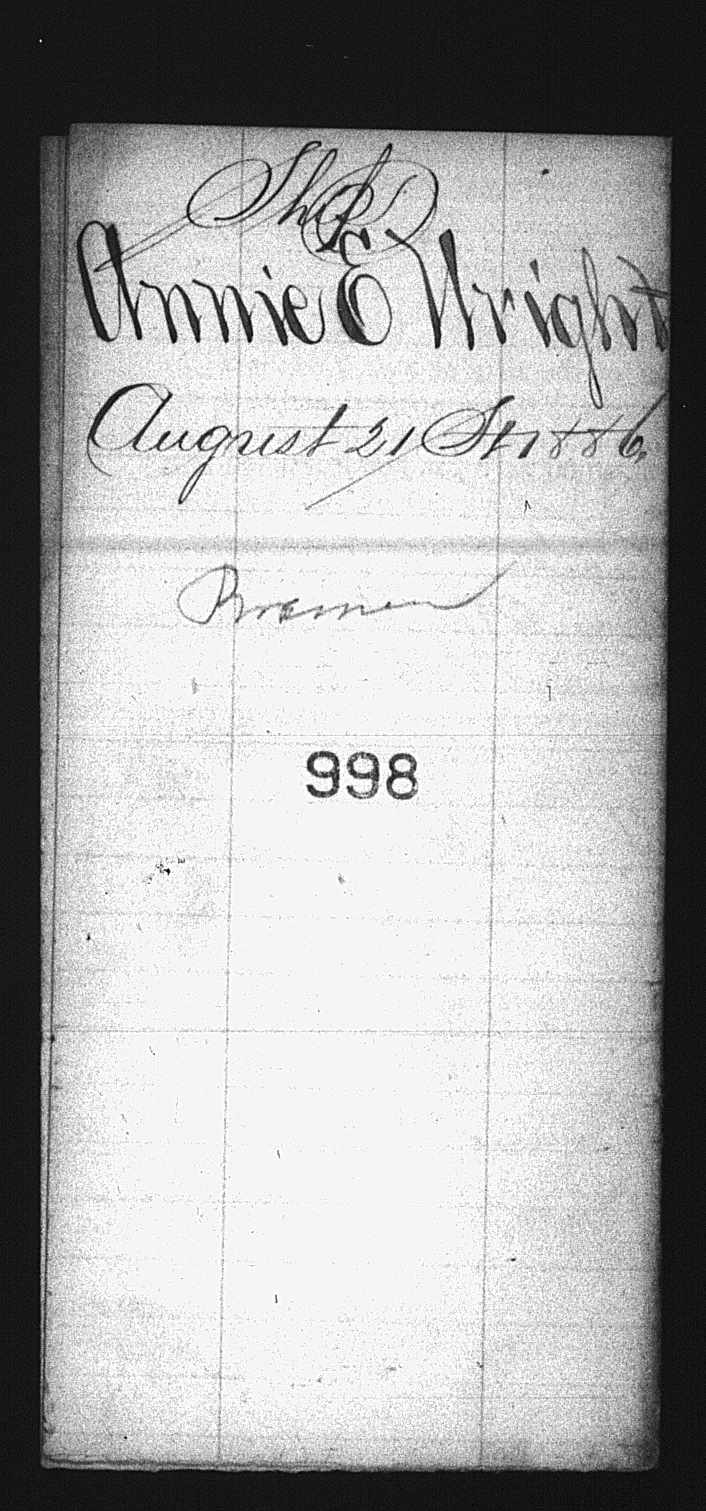 Ship
Annie E Wright
August 21 St 1886
Bremen
998